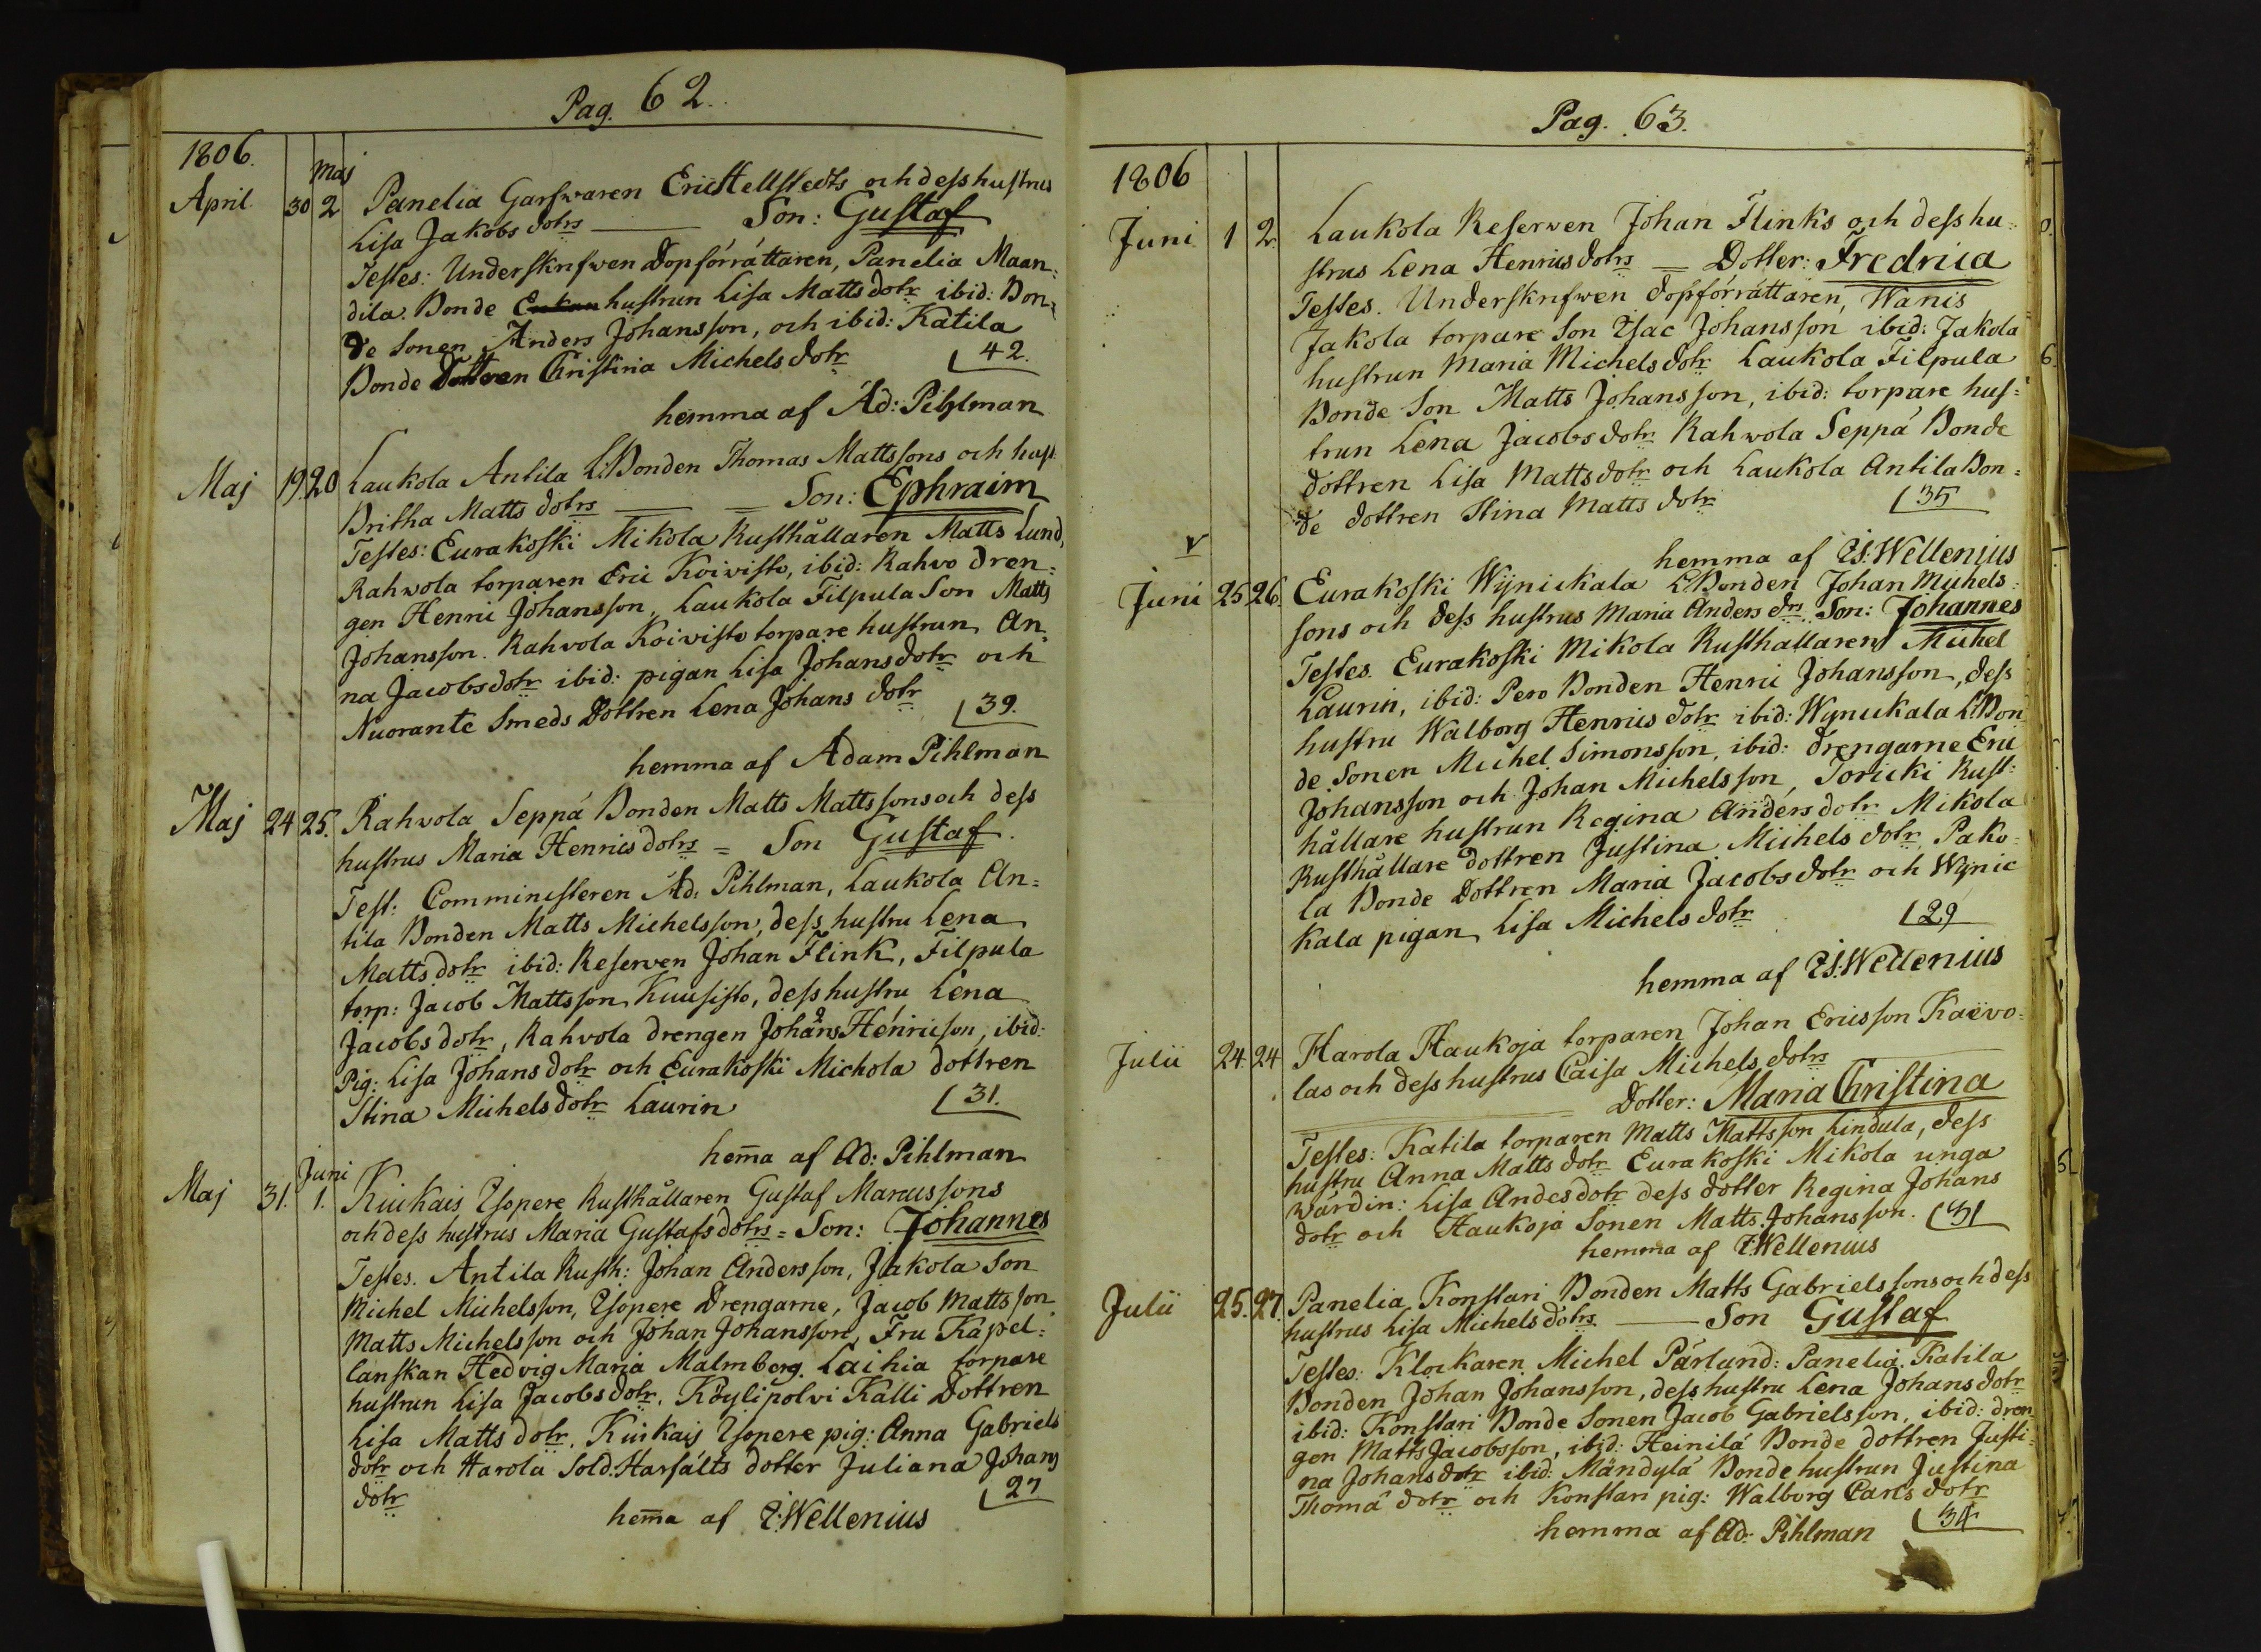 Pag. 62.
1806.
Maj
April 30 2 Panelia Garfwaren Eric Hellstedts och dess hustrus
Lisa Jakobs dotrs — Son: Gustaf
Testes: Underskrifwen Dopförrättaren, Panelia Maan=
dila. Bonde hustrun Lisa Matts dotr ibid: Bon=
de Sonen Anders Johansson, och ibid: Katila
Bonde Dottren Christina Michels dotr 42.
hemma af Ad: Pihlman
Maj 19. 20 Laukola Antila L:Bonden Thomas Mattssons och hust
Britha Matts dotrs — = Son: Ephraim
Testes: Eurakoski Mikola Rusthållaren Matts Lund,
Rahwola torparen Eric Koivisto, ibid: Rahvo dren=
gen Henric Johansson, Laukola Filpula Son Matts
Johansson. Rahvola Koivisto torpare hustrun An=
na Jacobsdotr ibid: pigan Lisa Johansdotr och
Nuorante Smeds Dottren Lena Johans dotr 39.
hemma af Adam Pihlman
Maj 24 25. Rahvola Seppä Bonden Matts Mattssons och dess
hustrus Maria Henricsdotrs = Son Gustaf.
Test: Comministeren Ad: Pihlman, Laukola An=
tila Bonden Matts Michelsson, dess hustru Lena
Matts dotr ibid: Reserven Johan Flink, Filpula
torp: Jacob Mattsson Kuusisto, dess hustru Lena
Jacobs dotr, Rahvola drengen Johans Henricson, ibid:
Pig: Lisa Johans dotr och Eurakoski Michola dottren
Stina Michels dotr Laurin 31.
hem̄a af Ad: Pihlman
Juni
Maj 31. 1. Kiukais Isopere Rusthållaren Gustaf Marcussons
och dess hustrus Maria Gustafs dotrs = Son: Johannes
Testes. Antila Rusth: Johan Andersson, Jakola Son
Michel Michelsson, Isopere Drengarne, Jacob Mattsson
Matts Michelsson och Johan Johansson, Fru Kapel=
lanskan Hedvig Maria Malmberg. Laihia torpare
hustrun Lisa Jacobs dotr, Köylipolvi Källi Dottren
Lisa Matts dotr. Kiukais Isopere pig: Anna Gabriels
dotr och Harola Sold. Harfälts dotter Juliana Johans
dotr 27
hem̄a af I: Wellenius
Pag. 63.
1806
Juni 1 2. Laukola Reserven Johan Flinks och dess hu=
strus Lena Henricsdotrs — Dotter: Fredrica
Testes. Underskrifwen dopförrättaren, Wanis
Jakola torpare Son Isac Johansson ibid: Jakola
hustrun Maria Michels dotr Laukola Filpula
Bonde Son Matts Johansson, ibid: torpare hus=
trun Lena Jacobs dotr Rahwola Seppä Bonde
dottren Lisa Mattsdotr och Laukola Antila Bon=
de dottren Stina Matts dotr 35
hemma af Is. Wellenius
V
Juni 25 26. Eurakoski Wijnickala L:Bonden Johan Michels=
sons och dess hustrus Maria Anders drs Son: Johannes
Testes. Eurakoski Mikola Rusthållaren Michel
Laurin, ibid: Pero Bonden Henric Johansson, dess
hustru Walborg Henrics dotr ibid: Wijnickala L:Bon
de Sonen Michel Simonsson, ibid: drengarne Eric
Johansson och Johan Michelsson, Toricki Rust=
hållare hustrun Regina Anders dotr Mikola
Rusthållare dottren Justina Michels dotr, Pako=
la Bonde Dottren Maria Jacobs dotr och Wijnic
kala pigan Lisa Michels dotr 29
hemma af Is. Wellenius
Julii 24. 24 Harola Haukoja torparen Johan Ericsson Kaivo=
las och dess hustrus Caisa Michels dotrs
Dotter: Maria Christina
Testes: Katila torparen Matts Mattsson Lindula, dess
hustru Anna Matts dotr Eurakoski Mikola unga
wärdin: Lisa Andesdotr dess dotter Regina Johans
dotr och Haukoja Sonen Matts Johansson. 31
hemma af I. Wellenius
Julii 25. 27. Panelia Konstari Bonden Matts Gabrielssons och dess
hustrus Lisa Michels dotrs — Son Gustaf
Testes: Klockaren Michel Pärlund: Panelia. Katila
Bonden Johan Johansson, dess hustru Lena Johans dotr
ibid: Konstari Bonde Sonen Jacob Gabrielsson, ibid: dren
gen Matts Jacobsson, ibid: Heinilä Bonde dottren Justi=
na Johansdotr ibid: Mändylä Bonde hustrun Justina
Thoma dotr och Konstari pig: Walborg Carls dotr
hemma af Ad: Pihlman 34